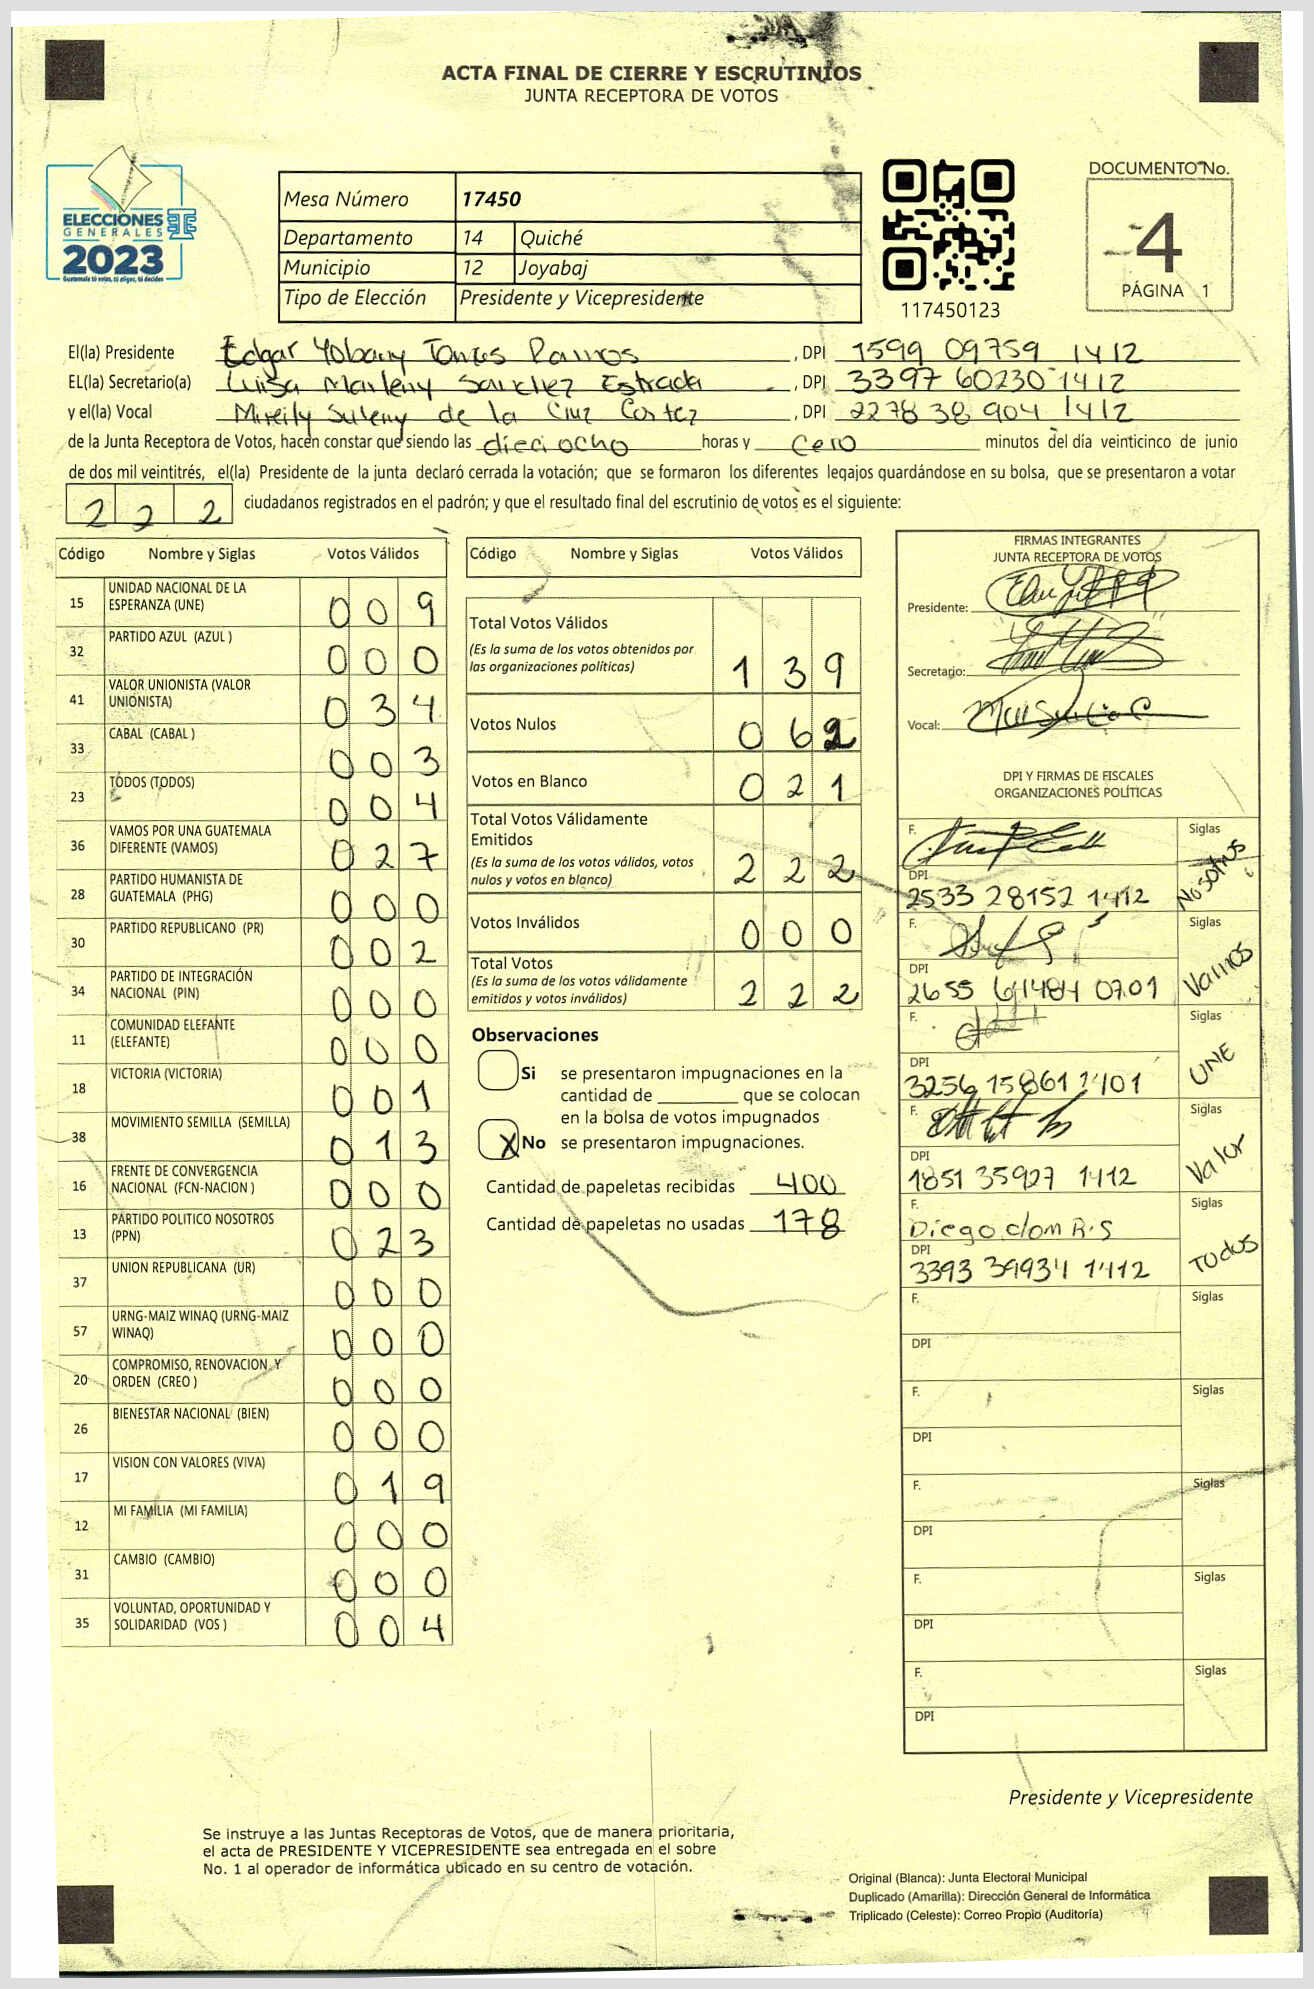 ACTA FINAL DE CIERRE Y ESCRUTINIOS
JUNTA RECEPTORA DE VOTOS
ELECCIONES
GENERALES
2023
Guatemala tú votas, tú eliges, tú decides
Mesa Número 17450
Departamento 14 Quiché
Municipio 12 Joyabaj
Tipo de Elección Presidente y Vicepresidente
117450123
DOCUMENTO No.
4
PÁGINA 1
El(la) Presidente Edgar Yobany Torres Ramos, DPI 1599 09759 1412
EL(la) Secretario(a) Luisa Marleny Sanchez Estrada, DPI 3397 60230 1412
y el(la) Vocal Mireily Suleny de la Cruz Cortez, DPI 2278 38 904 1412
de la Junta Receptora de Votos, hacen constar que siendo las dieciocho horas y cero minutos del día veinticinco de junio
de dos mil veintitrés, el(la) Presidente de la junta declaró cerrada la votación; que se formaron los diferentes legajos guardándose en su bolsa, que se presentaron a votar
222 ciudadanos registrados en el padrón; y que el resultado final del escrutinio de votos es el siguiente:
Código Nombre y Siglas Votos Válidos
15 UNIDAD NACIONAL DE LA ESPERANZA (UNE) 009
32 PARTIDO AZUL (AZUL ) 000
41 VALOR UNIONISTA (VALOR UNIONISTA) 034
33 CABAL (CABAL ) 003
23 TODOS (TODOS) 004
36 VAMOS POR UNA GUATEMALA DIFERENTE (VAMOS) 027
28 PARTIDO HUMANISTA DE GUATEMALA (PHG) 000
30 PARTIDO REPUBLICANO (PR) 002
34 PARTIDO DE INTEGRACIÓN NACIONAL (PIN) 000
11 COMUNIDAD ELEFANTE (ELEFANTE) 000
18 VICTORIA (VICTORIA) 001
38 MOVIMIENTO SEMILLA (SEMILLA) 013
16 FRENTE DE CONVERGENCIA NACIONAL (FCN-NACION ) 000
13 PARTIDO POLITICO NOSOTROS (PPN) 023
37 UNION REPUBLICANA (UR) 000
57 URNG-MAIZ WINAQ (URNG-MAIZ WINAQ) 000
20 COMPROMISO, RENOVACION Y ORDEN (CREO ) 000
26 BIENESTAR NACIONAL (BIEN) 000
17 VISION CON VALORES (VIVA) 019
12 MI FAMILIA (MI FAMILIA) 000
31 CAMBIO (CAMBIO) 000
35 VOLUNTAD, OPORTUNIDAD Y SOLIDARIDAD (VOS ) 004
Código Nombre y Siglas Votos Válidos
Total Votos Válidos
(Es la suma de los votos obtenidos por
las organizaciones políticas) 139
Votos Nulos 062
Votos en Blanco 021
Total Votos Válidamente
Emitidos
(Es la suma de los votos válidos, votos
nulos y votos en blanco) 222
Votos Inválidos 000
Total Votos
(Es la suma de los votos válidamente
emitidos y votos inválidos) 222
Observaciones
Si se presentaron impugnaciones en la
cantidad de ________ que se colocan
en la bolsa de votos impugnados
X No se presentaron impugnaciones.
Cantidad de papeletas recibidas 400
Cantidad de papeletas no usadas 178
FIRMAS INTEGRANTES
JUNTA RECEPTORA DE VOTOS
Presidente:
Secretario:
Vocal:
DPI Y FIRMAS DE FISCALES
ORGANIZACIONES POLÍTICAS
F. Siglas Nosotros
DPI 2533 28152 1412
F. Siglas Vamos
DPI 2655 61484 0701
F. Siglas UNE
DPI 3256 15861 1401
F. Siglas Valor
DPI 1851 35927 1412
F. Diego Siglas Todos
DPI 3393 39934 1412
F. Siglas
DPI
F. Siglas
DPI
F. Siglas
DPI
F. Siglas
DPI
F. Siglas
DPI
Presidente y Vicepresidente
Se instruye a las Juntas Receptoras de Votos, que de manera prioritaria,
el acta de PRESIDENTE Y VICEPRESIDENTE sea entregada en el sobre
No. 1 al operador de informática ubicado en su centro de votación.
Original (Blanca): Junta Electoral Municipal
Duplicado (Amarilla): Dirección General de Informática
Triplicado (Celeste): Correo Propio (Auditoría)